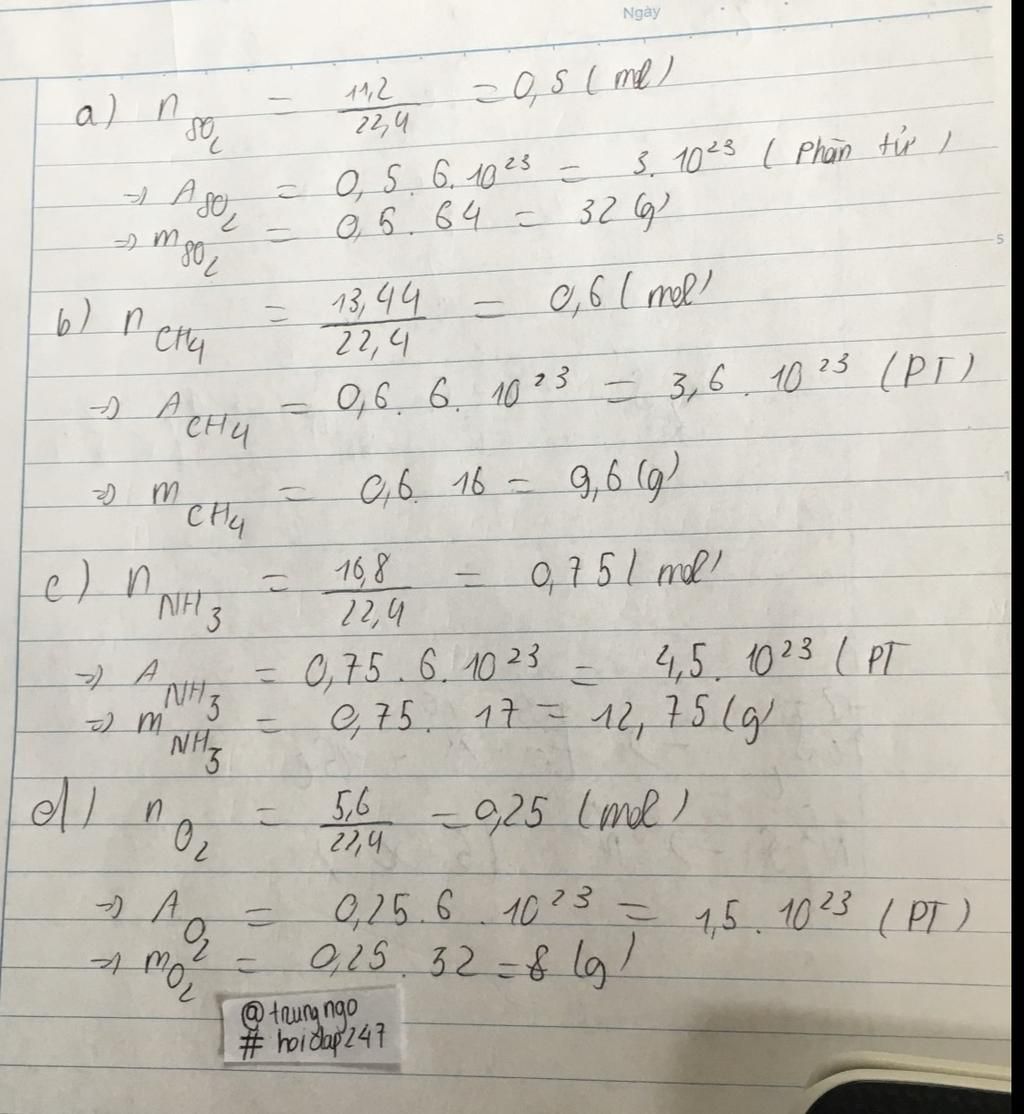 Ngày
a) n SO₂ = 11,2/22,4 = 0,5 (mol)
=> A SO₂ = 0,5. 6. 10²³ = 3. 10²³ (phân tử)
=> m SO₂ = 0,5. 64 = 32 (g)
5
b) n CH₄ = 13,44/22,4 = 0,6 (mol)
=> A CH₄ = 0,6. 6. 10²³ = 3,6. 10²³ (PT)
=> m CH₄ = 0,6. 16 = 9,6 (g)
c) n NH₃ = 16,8/22,4 = 0,75 (mol)
=> A NH₃ = 0,75. 6. 10²³ = 4,5. 10²³ (PT
=> m NH₃ = 0,75. 17 = 12,75 (g)
d) n O₂ = 5,6/22,4 = 0,25 (mol)
=> A O₂ = 0,25. 6. 10²³ = 1,5. 10²³ (PT)
=> m O₂ = 0,25. 32 = 8 (g)
@trungngo
# hoidap247